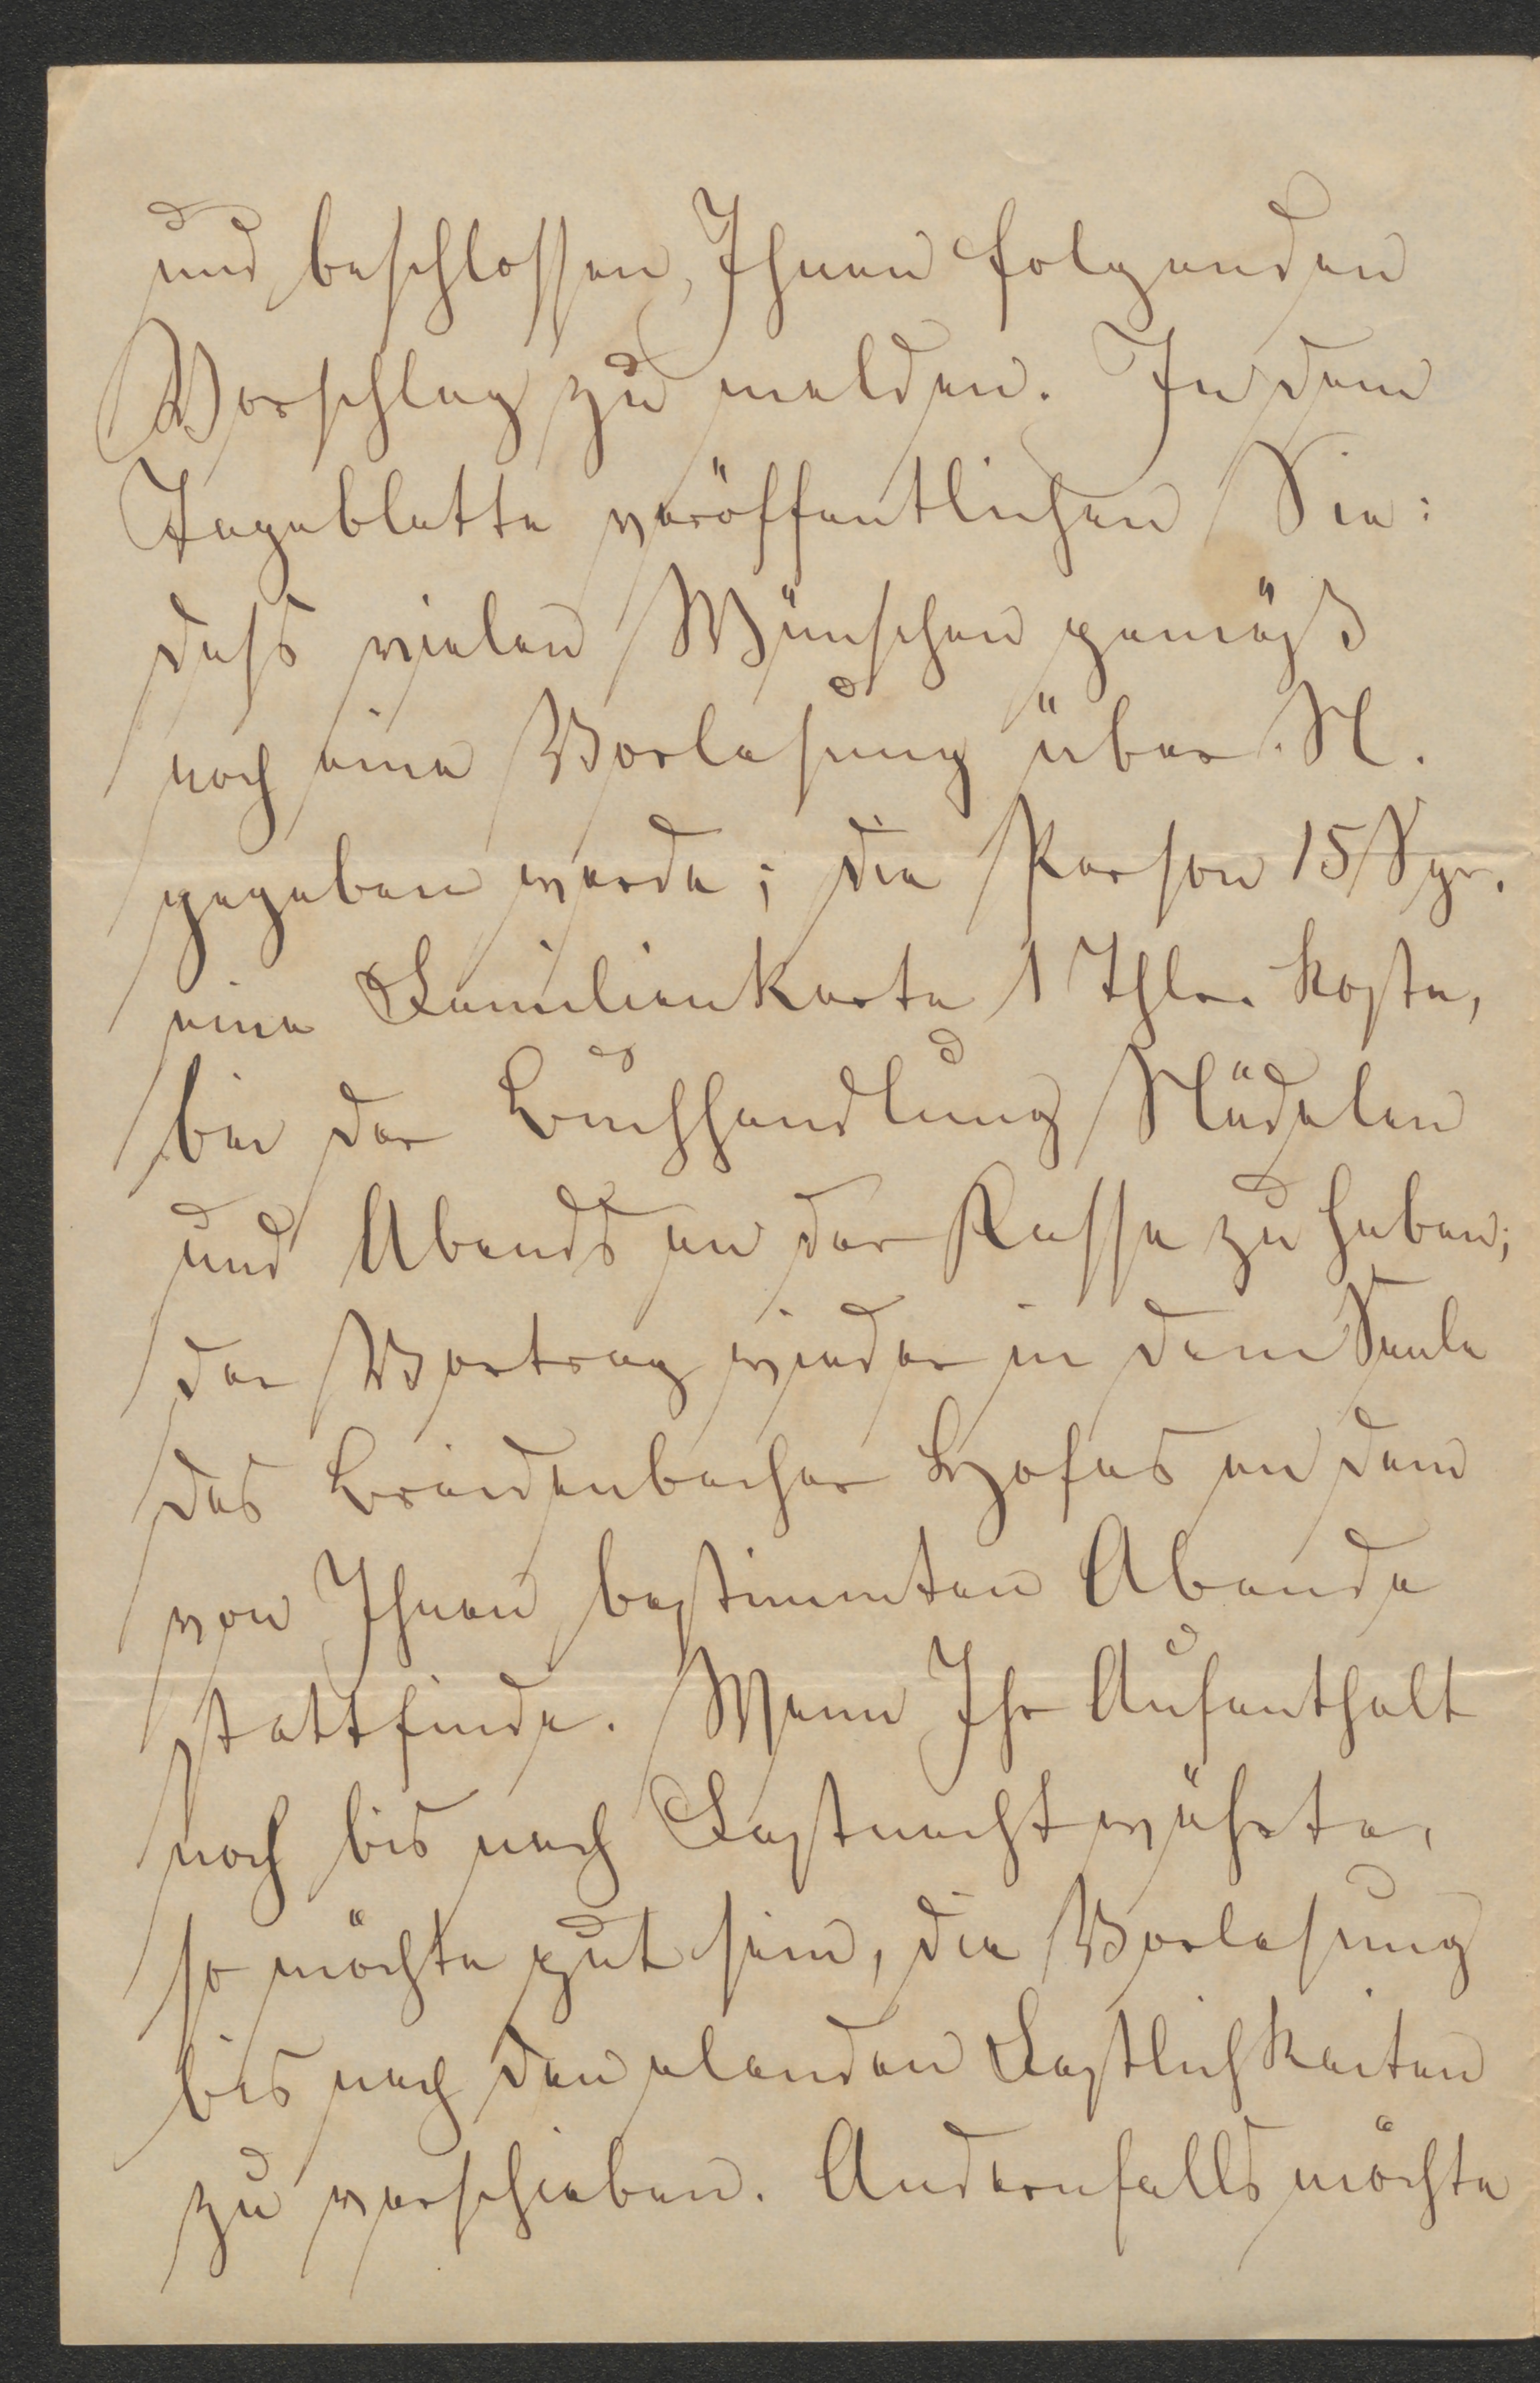 und beschlossen, Ihnen folgenden
Vorschlag zu melden. In dem
Tageblatte veröffentlichen Sie:
dass vielen Wünschen gemäß
noch eine Vorlesung über N.
gegeben werde; die Person 15 Sgr.
eine Familienkarte 1 Thlr. koste,
bei der Buchhandlung Nädelen
und Abends an der Kasse zu haben;
der Vortrag wieder in dem Saale
des Breidenbacher Hofes an dem
von Ihnen bestimmten Abende
stattfinde. Wenn Ihr Aufenthalt
noch bis nach Fastnacht währte,
so möchte gut sein, die Vorlesung
bis nach den elenden Festlichkeiten
zu verschieben. Andernfalls möchte